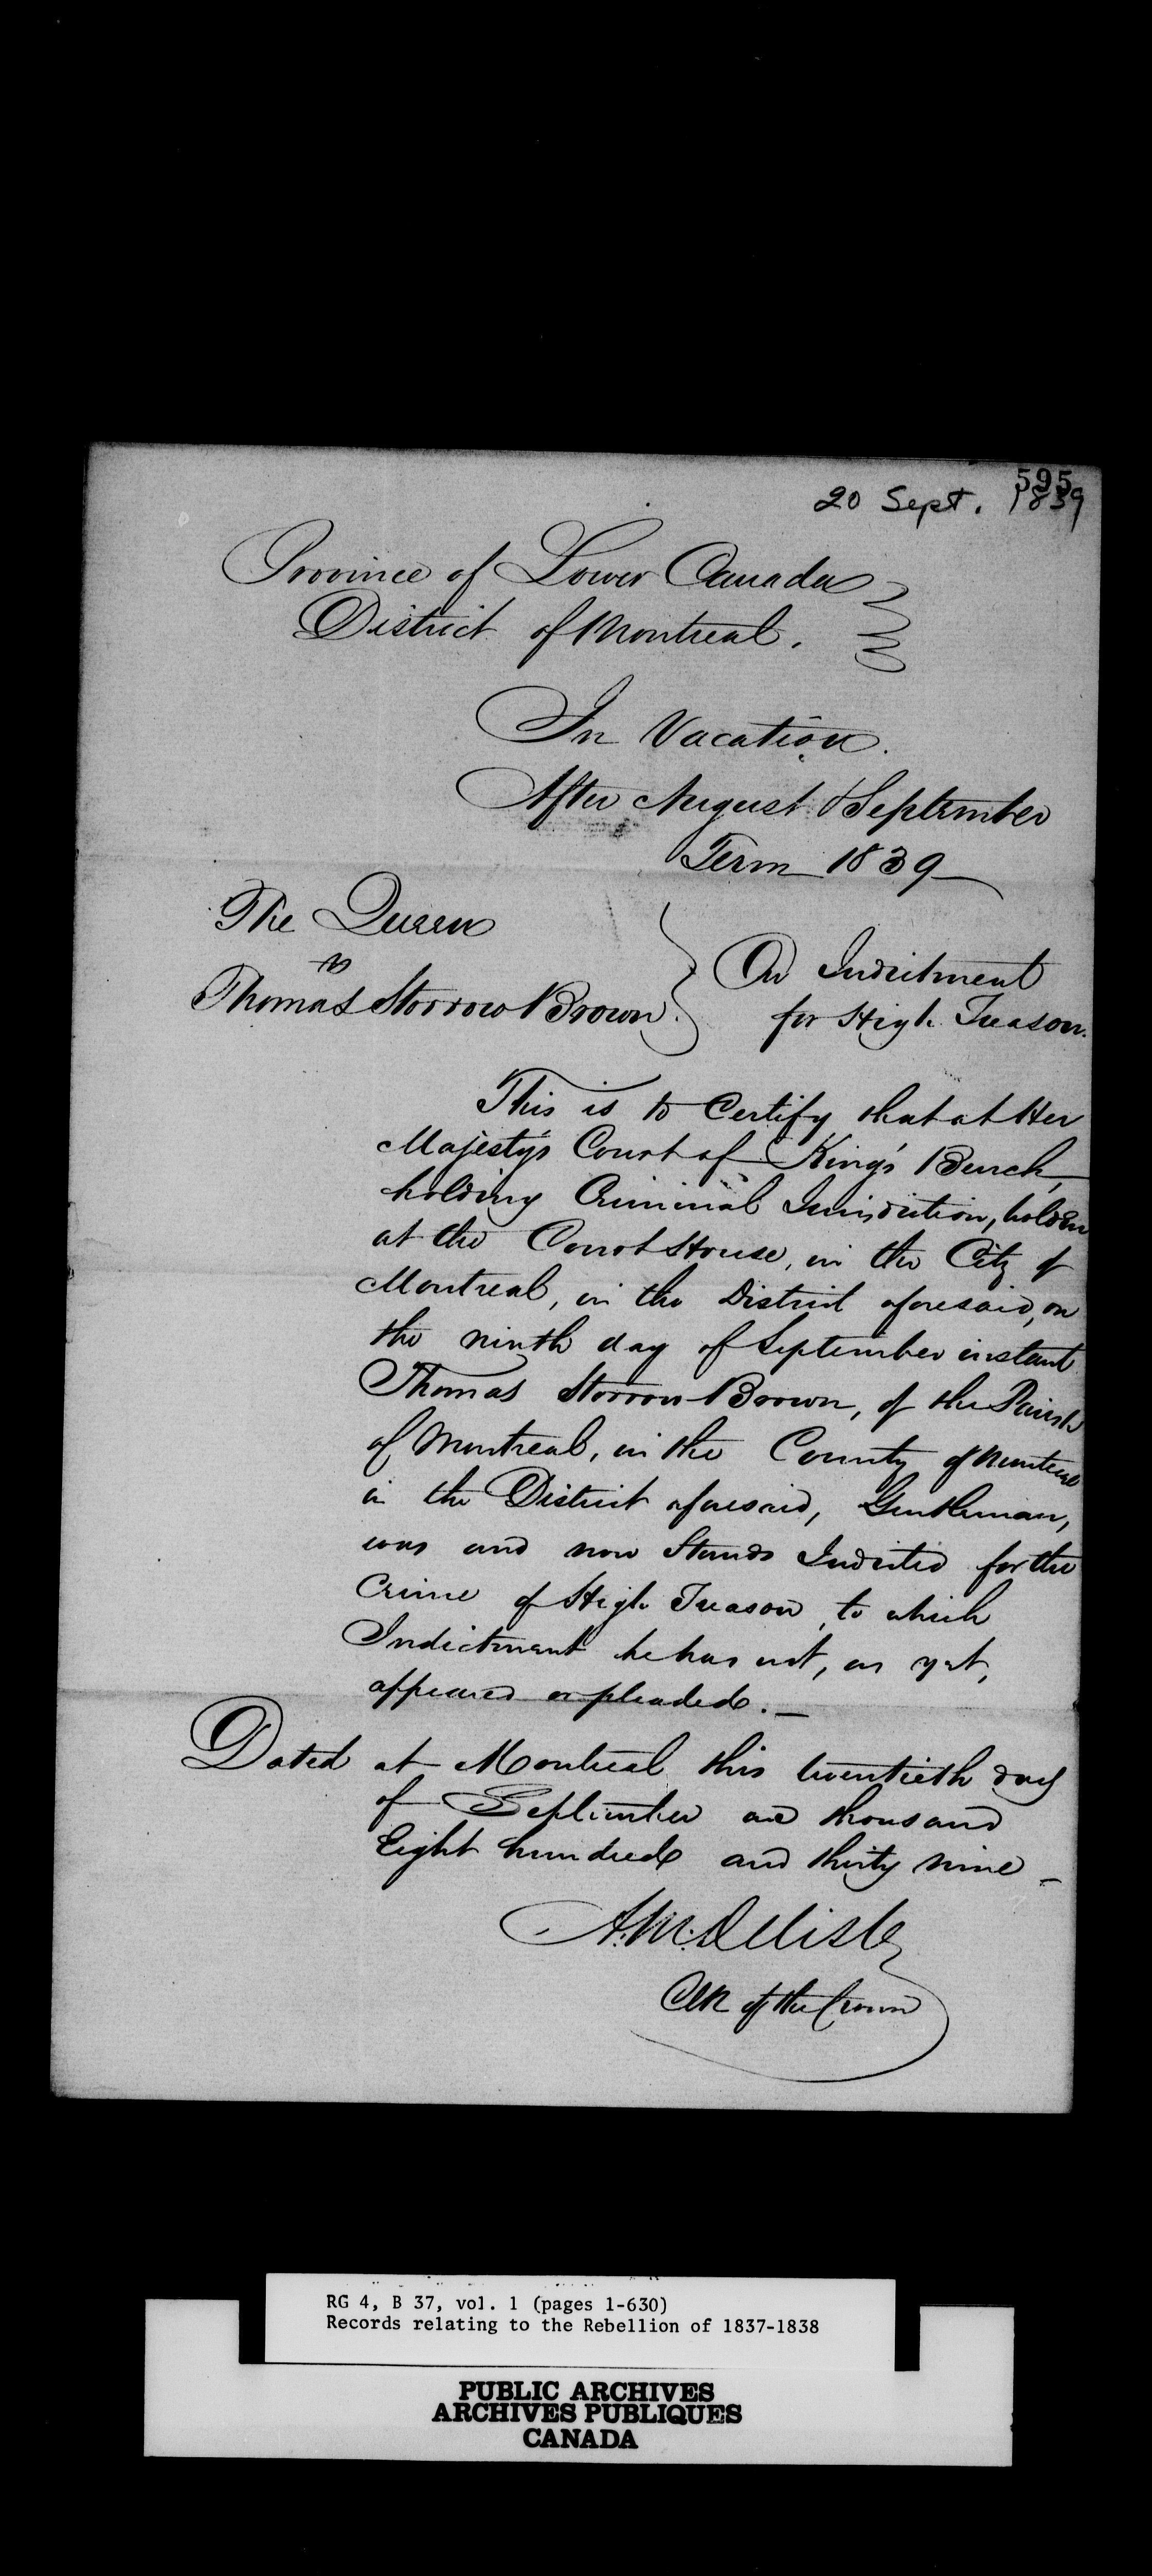 595
20 Sept. 1839
Province of Lower Canada
District of Montreal.
In Vacation.
After August & September
Term 1839
The Queen
vs
Thomas Storrow Brown.
On Indictment
for High Treason.
This is to Certify that at Her
Majesty's Court of King's Bench,
holding Criminal Jurisdiction, holden
at the Court House, in the City of
Montreal, in the District aforesaid, on
the ninth day of September instant
Thomas Storrow Brown, of the Parish
of Montreal, in the County of Montreal
in the District aforesaid, Gentleman,
was and now Stands Indicted for the
Crime of High Treason, to which
Indictment he has not, as yet,
appeared or pleaded.
Dated at Montreal this twentieth day
of September one thousand
Eight hundred and thirty nine
A. M. Delisle
Clk of the Crown
RG 4, B 37, vol. 1 (pages 1-630)
Records relating to the Rebellion of 1837-1838
PUBLIC ARCHIVES
ARCHIVES PUBLIQUES
CANADA